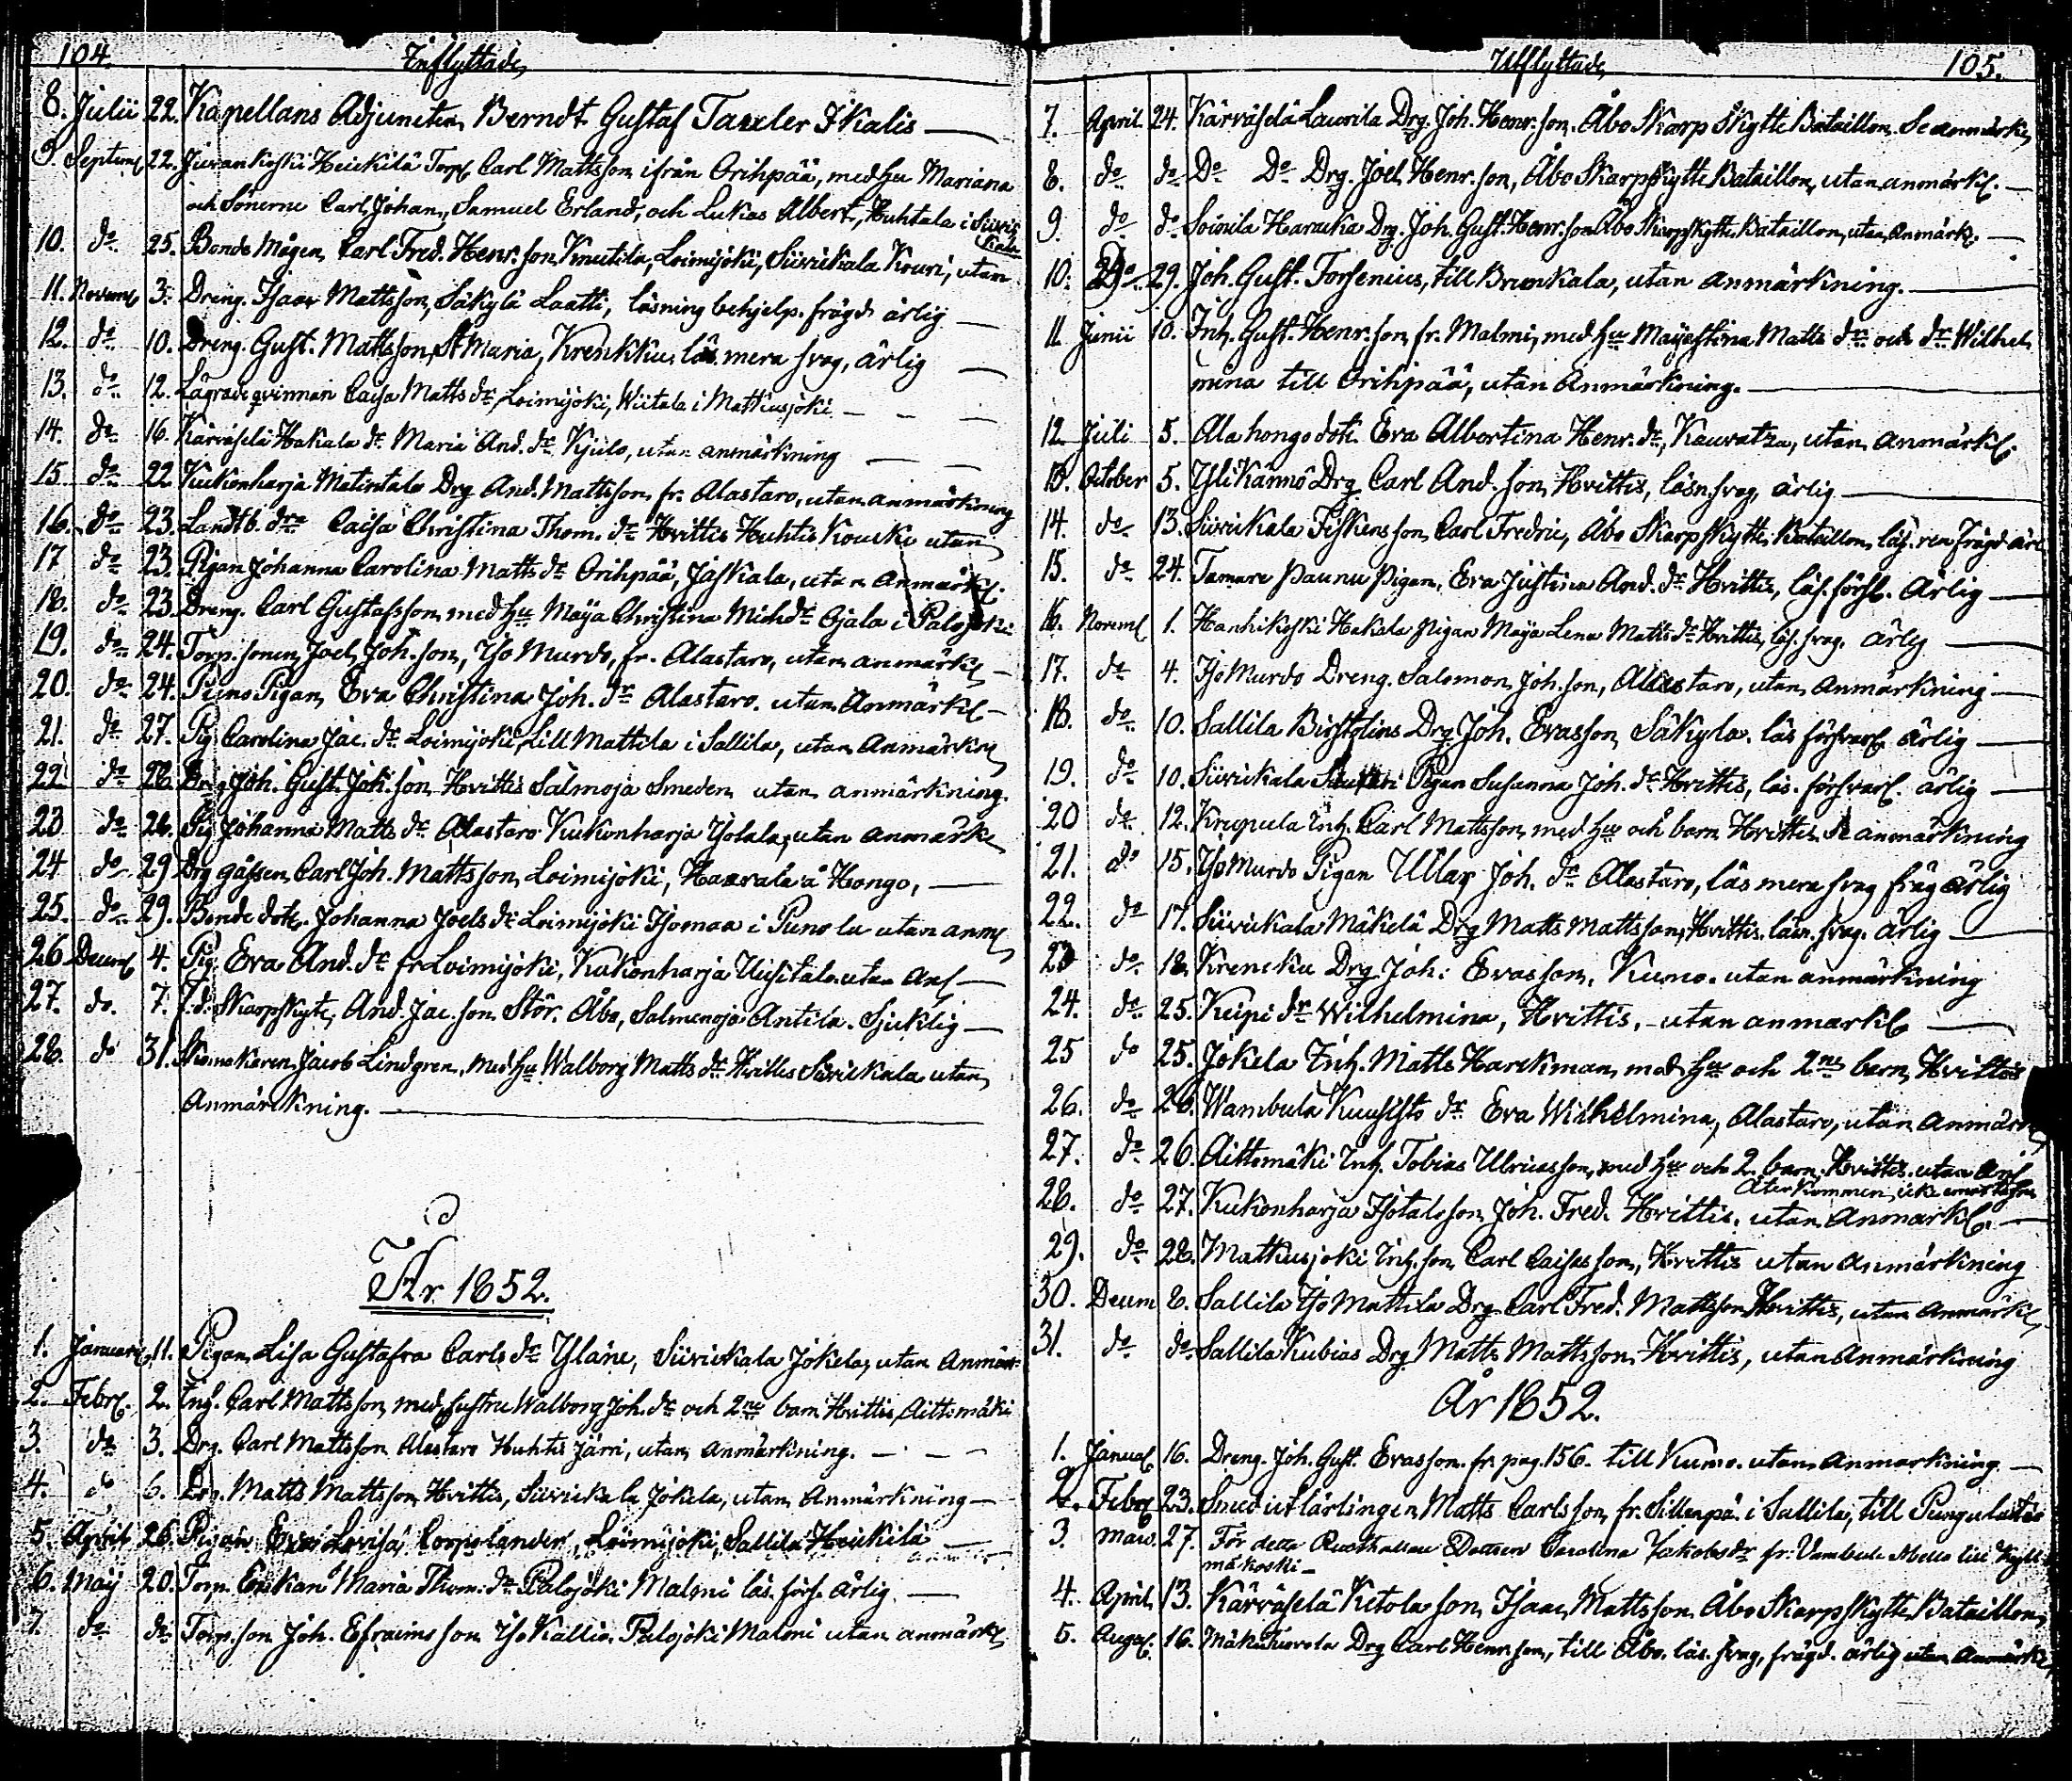 104.
Inflyttade
8. Julii 22. Kapellans Adjuncten Berndt Gustaf Taxler Ikalis
9. Septemb 22. Juvankoski Heickilä Torp. Carl Mattsson ifrån Orihpää, med hu Mariana
och Sönerne Carl Johan, Samuel Erland, och Lukas Albert, Huhtala i Suvri
kala
10. do 25. Bonde Mågen Carl Fred. Henr.son Knutila, Loimijoki, Suvrickala Kouri, utan
11. Novemb 3. Dreng. Isaac Mattsson, Säkylä Laatti, läsning behjelp. frägd ärlig
12. do 10. Dreng Gust. Mattsson, St Maria, Krenkku, läs. mera svag, ärlig
13. do 12. Lägrade qvinnan Caisa Matts dr, Loimijoki, Wiitala i Matkusjoki
14. do 16. Kärväselä Hakala dr Maria And. dr Kjulo, utan anmärkning
15 do 22 Kukonharja Matintalo Drg And. Mattsson fr. Alastaro, utan anmärkning
16. do 23. Landtb. dra Caisa Christina Thom. dr Hvittis Huhtis Kouki utan
17 do 23. Pigan Johanna Carolina Matts dr Orihpää, Jaskala, utan Anmärk.
18. do 23. Dreng. Carl Gustafsson med hu Maja Christina Mich dr Ojala i Palojoki
19. do 24. Torp. sonen Joel Joh.son, Iso Murdo, fr. Alastaro, utan anmärk
20. do 24. Puno Pigan, Eva Christina Joh. dr Alastaro. utan Anmärk
21. do 27. Pig Carolina Jac. dr Loimijoki, till Mattila i Sallila, utan Anmärkng
22. do 28. Drg Joh. Gust. Joh.son Hvittis Salmoja Smeden utan anmärkning.
23 do 28. Pig Johanna Matts dr Alastaro Kukonharja Isotalo, utan anmärk
24 do 29 Drg gåssen Carl Joh. Mattsson, Loimijoki, Haxrala å Hongo,
25. do 29. Bonde dotr. Johanna Joels dr Loimijoki Isomaa i Puno la utan anm
26 Decemb 4. Pig. Eva And. dr fr Loimijoki, Kukonharja Uusitalo utan an
27. do. 7. f.d. Skarpskytt, And. Jac.son Stör. Åbo, Salmenoja Antila. Sjuklig
28. do 31. Skomakaren Jacob Lindgren, med hu Walborg Matts dr Hvittis Suvrickala utan
Anmärckning.
År 1852.
1. Januarii 11. Pigan Lisa Gustafva Carls dr Yläne, Suvrickala Jokela, utan Anmär
2. Febr. 2. Inh. Carl Mattsson, med hustru Walborg Joh. dr och 2ne barn Hvittis, Aittomäki
3. do 3. Drg. Carl Mattsson Alastaro Huhtis Järri, utan Anmärkning.
4. do 6. Drg. Matts Mattsson Hvittis, Suvrickala Jokela, utan Anmärkning
5. April 26. Pigan Eva Lovisa Corpolander, Loimijoki, Sallila Heickilä
6. Maij 20. Torp. Enkan Maria Thom. dr Palojoki Malmi läs. förs. ärlig
7. do do Torp.son Joh. Efraims son Iso Kallio, Palojoki Malmi utan anmärk
Utflyttade
105.
7. April 24. Kärväselä Laurila Drg. Joh. Henr.son. Åbo Skarp Skytte Bataillon. Se anmärk
8. do do Do Do Drg. Joel Henr.son, Åbo Skarpskytte Bataillon, utan anmärk.
9. do do Soinila Haracka Drg. Joh. Gust. Henr.son Åbo Skarpskytte Bataillon, utan Anmärk.
10. do 29. Joh. Gust. Forsenius, till Brunkala, utan anmärkning.
11. Junii 10. Inh. Gust. Henr.son fr. Malmi, med hu Majastina Matts dr och dr Wilhel
mina till Orihpää, utan Anmärkning.
12. Juli 5. Ala hongo dotr. Eva Albertina Henr. dr, Kauvatza, utan Anmärk.
13. October 5. Ylikännö Drg Carl And.son, Hvittis, läsn. svag, ärlig
14. do 13. Suvrickala Fiskens son, Carl Fredric, Åbo Skarpskytte Bataillon, läs. ren frägd ärl
15. do 24. Tamare Paunu Pigan, Eva Justina And. dr Hvittis, läs. försv. Ärlig
16. Novemb 1. Hanhikoski Hakala Pigan Maja Lena Matts dr Hvittis, läs. svag. ärlig
17. do 4. Iso Murdo Dreng. Salomon Joh.son, Alastaro, utan Anmärkning
18. do 10. Sallila Birstolins Drg Joh. Evasson Säkyla. läs försvarl. ärlig
19. do 10. Suvrickala Pigan Susanna Joh. dr Hvittis, läs. försvarl. ärlig
20 do 12. Krupula Inh. Carl Mattsson, med hu och barn Hvittis. Se anmärkning
21. do 15. Iso Murdo Pigan Ulla Joh. dr Alastaro, läs mera svag fräg ärlig
22. do 17. Suvrickala Mäkelä Drg Matts Mattsson, Hvittis. läsn. svag. ärlig
23 do 18. Krencku Drg. Joh. Evasson, Kumo. utan anmärkning
24. do 25. Keipi dr Wilhelmina, Hvittis, utan anmärk
25 do 25. Jokela Inh. Matts Harckman, med hu och 2ne barn, Hvittis
26. do 26. Wambula Kuusisto dr Eva Wilhelmina, Alastaro, utan Anmärk
27. do 26. Aittomäki Inh. Tobias Ulricasson, med hu och 2 barn. Hvittis. utan An
återkommen, icke emottagen
28. do 27. Kukonharja Isotalo son, Joh. Fred. Hvittis. utan Anmärk.
29. do 28. Matkusjoki Inh.son Carl Caisasson, Hvittis utan Anmärkning
30. Decem 8. Sallila Iso Mattila Drg Carl Fred. Mattsson Hvittis, utan Anmärk
31. do do Sallila Kubias Drg Matts Mattsson, Hvittis, utan Anmärkning
År 1852.
1. Januar 16. Dreng. Joh. Gust. Evasson. fr. pag. 156. till Kumo. utan Anmärkning.
2. Febr 23. Smed ut lärlingen Matts Carlsson, fr. Sillanpä i Sallila, till Pungalaitio
3. Mars. 27. För detta Rusthållare Dottren Carolina Jakobsdr fr. Vambula till Kyll
mäkoski
4. April 13. Kärväselä Ketola son, Isaac Mattsson, Åbo Skarpskytte Bataillon,
5. August 16. Drg Carl Henr.son, till Åbo. läs. svag, frägd. ärlig utan Anmärk